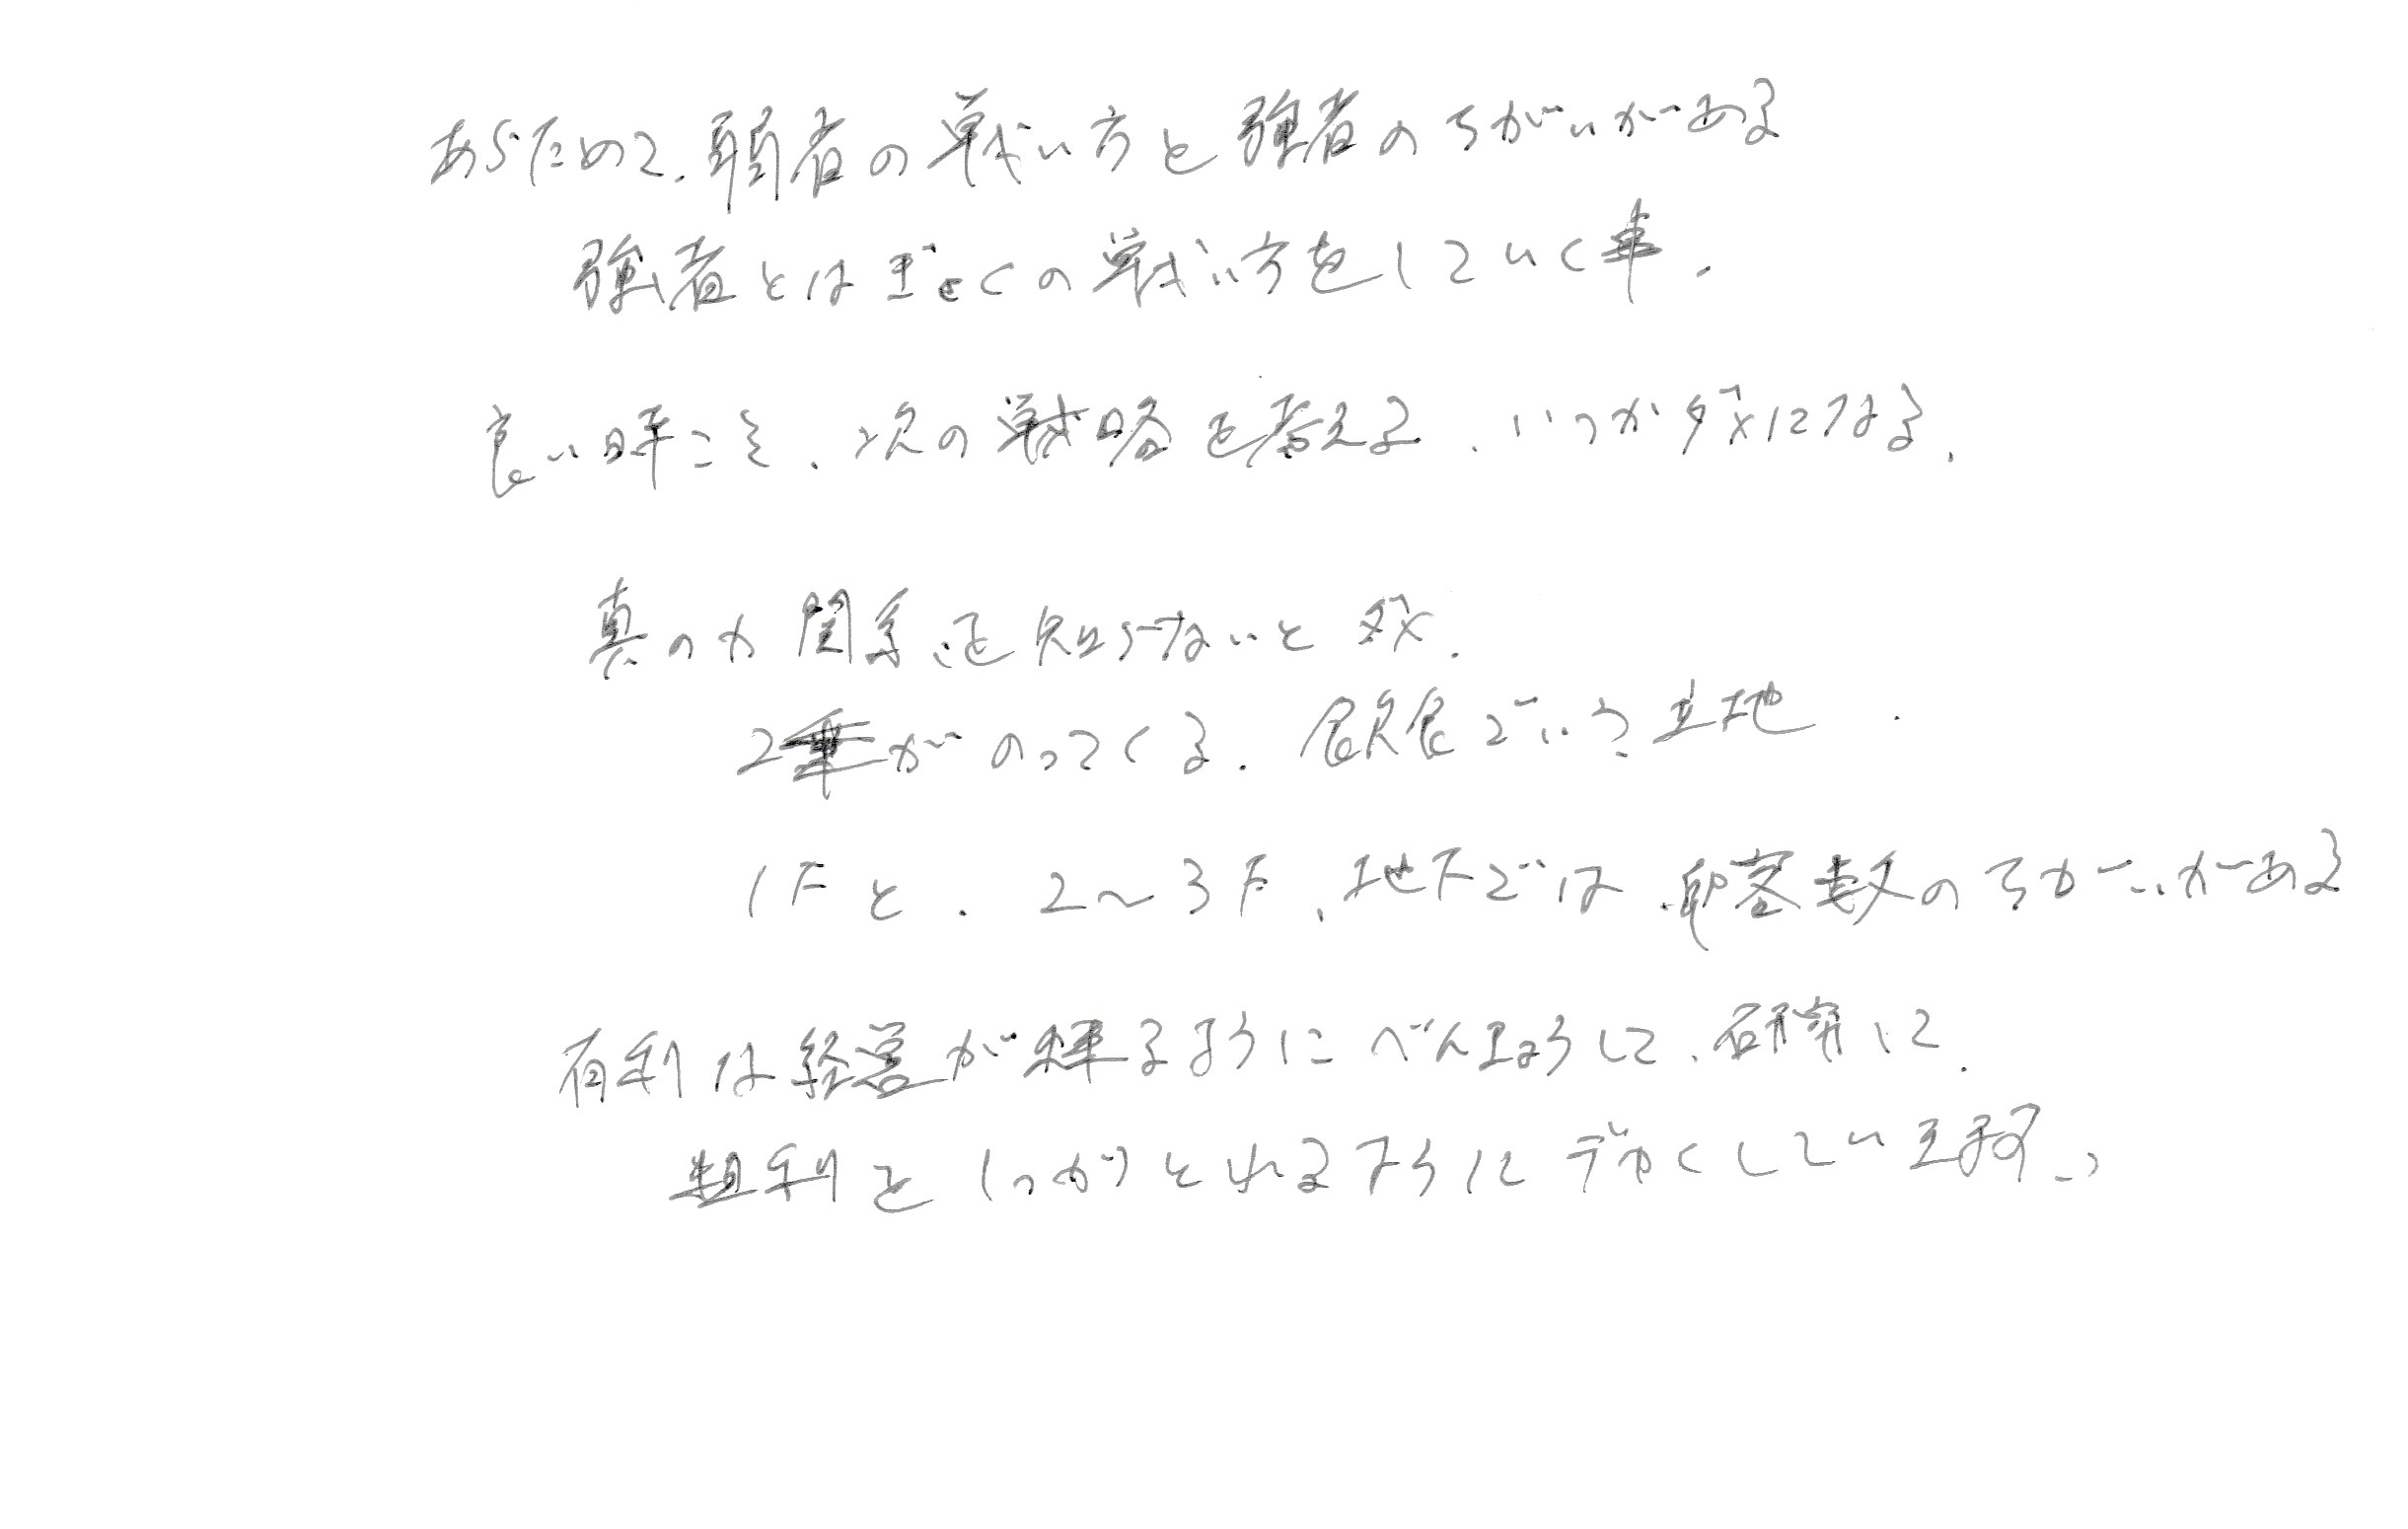 あらためて、弱者の戦い方と強者のちがいがある
強者とは の戦い方をしていく事.
良い時こそ、次の戦略を考える、いつかダメになる.
真の力関係を知らないとダメ.
2乗がのってくる. 飲食でいう立地.
1Fと、2〜3F、地下では、卸客数のちがいがある
有利な経営が出来るようにべんきょうして、研究して.
粗利をしっかりとれるようにデカくしています。